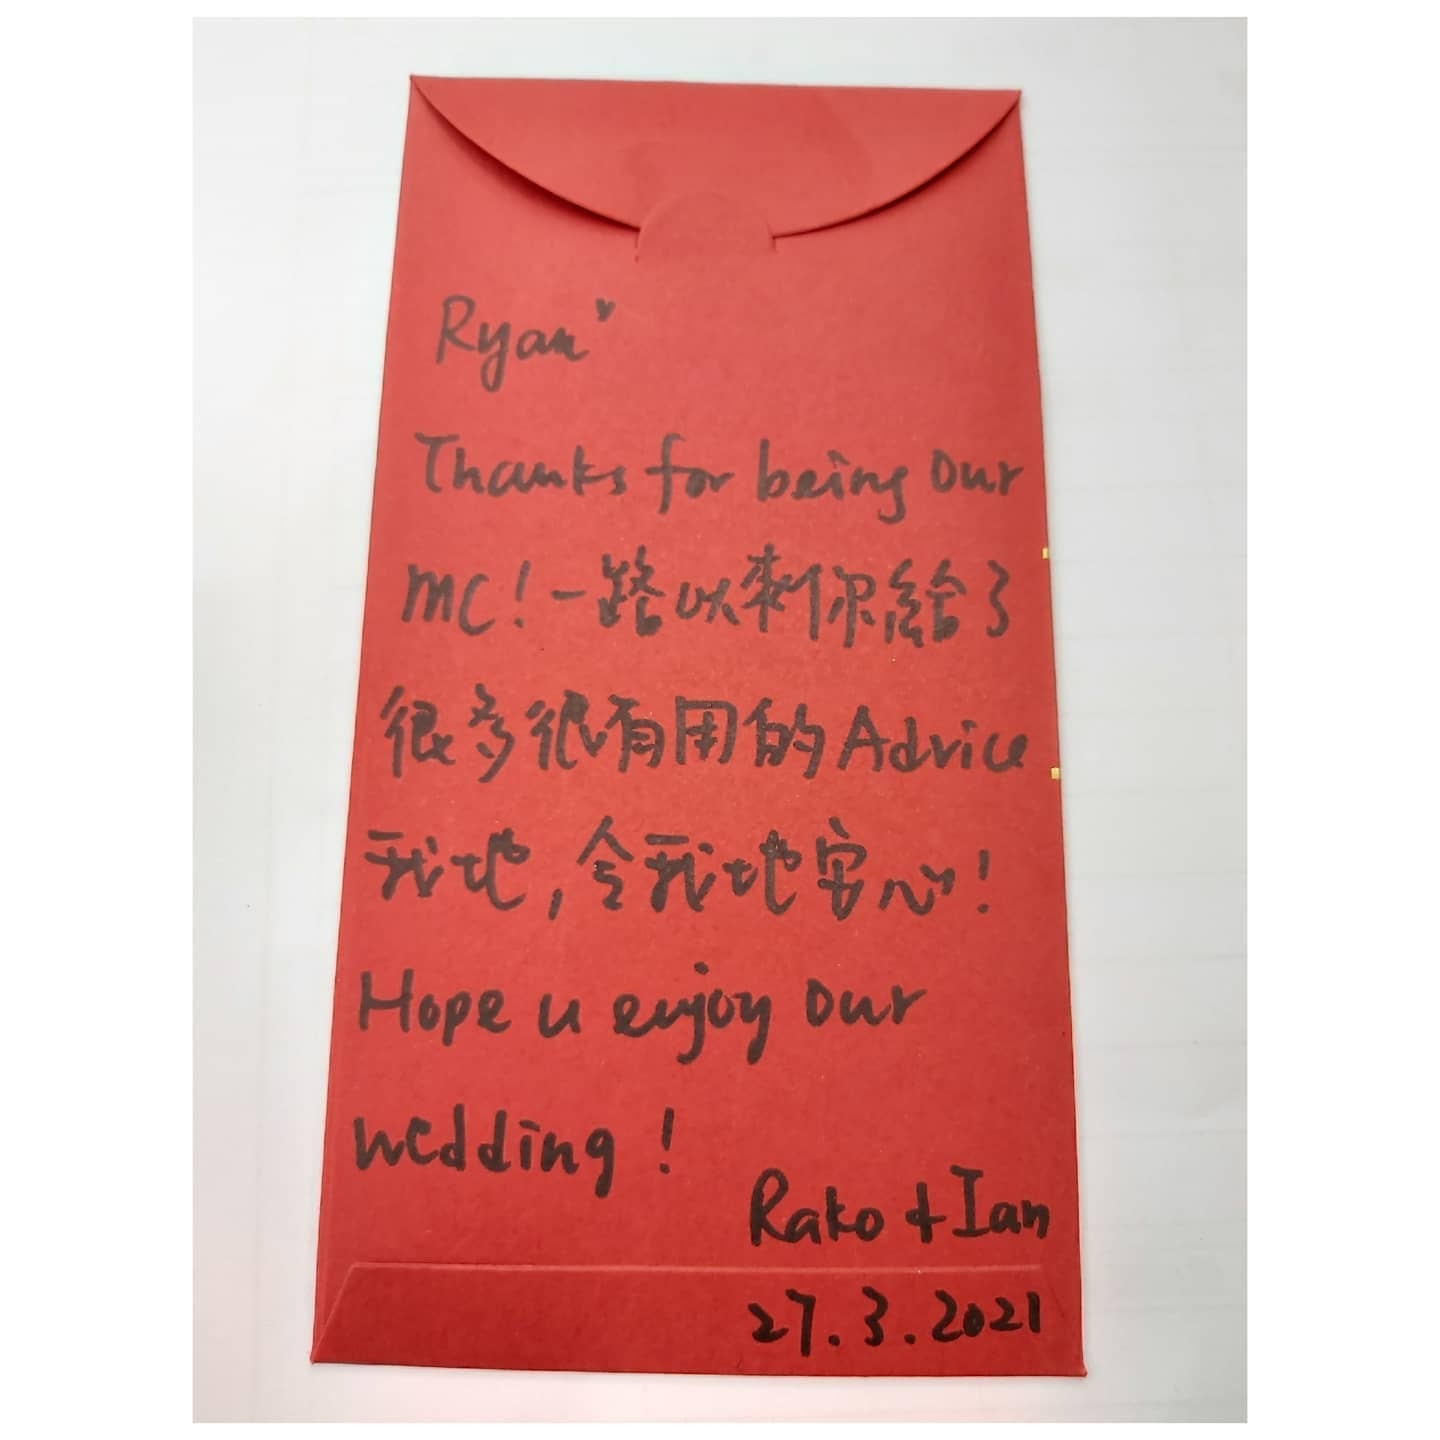 Ryan♥
Thanks for being Our
MC!一路以來你給了
很多很有用的Advice
我地,令我地安心!
Hope u enjoy Our
wedding!
Rako + Ian
27.3.2021